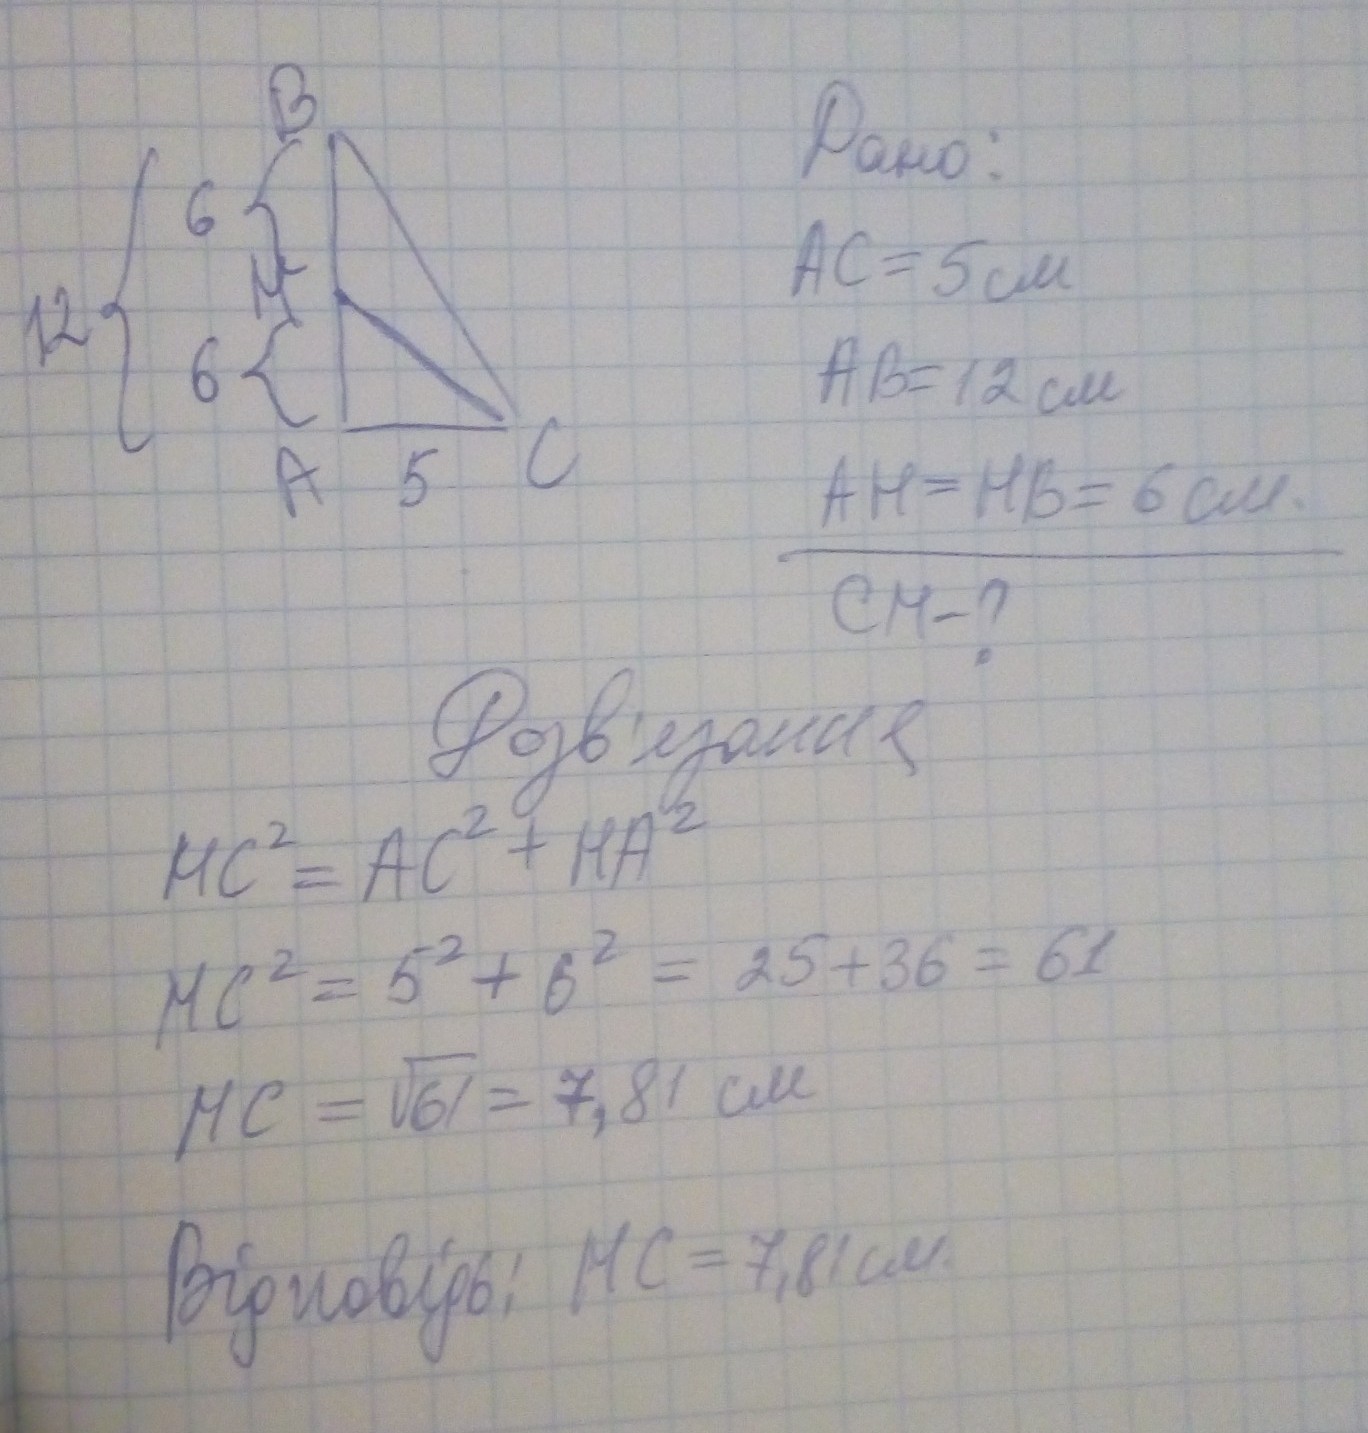 B
6
M
12
6
A 5 C
Дано:
AC = 5 см
AB = 12 см
AM = MB = 6 см.
CM - ?
Розв'язання
MC² = AC² + MA²
MC² = 5² + 6² = 25 + 36 = 61
MC = √61 = 7,81 см
Відповідь: MC = 7,81 см.